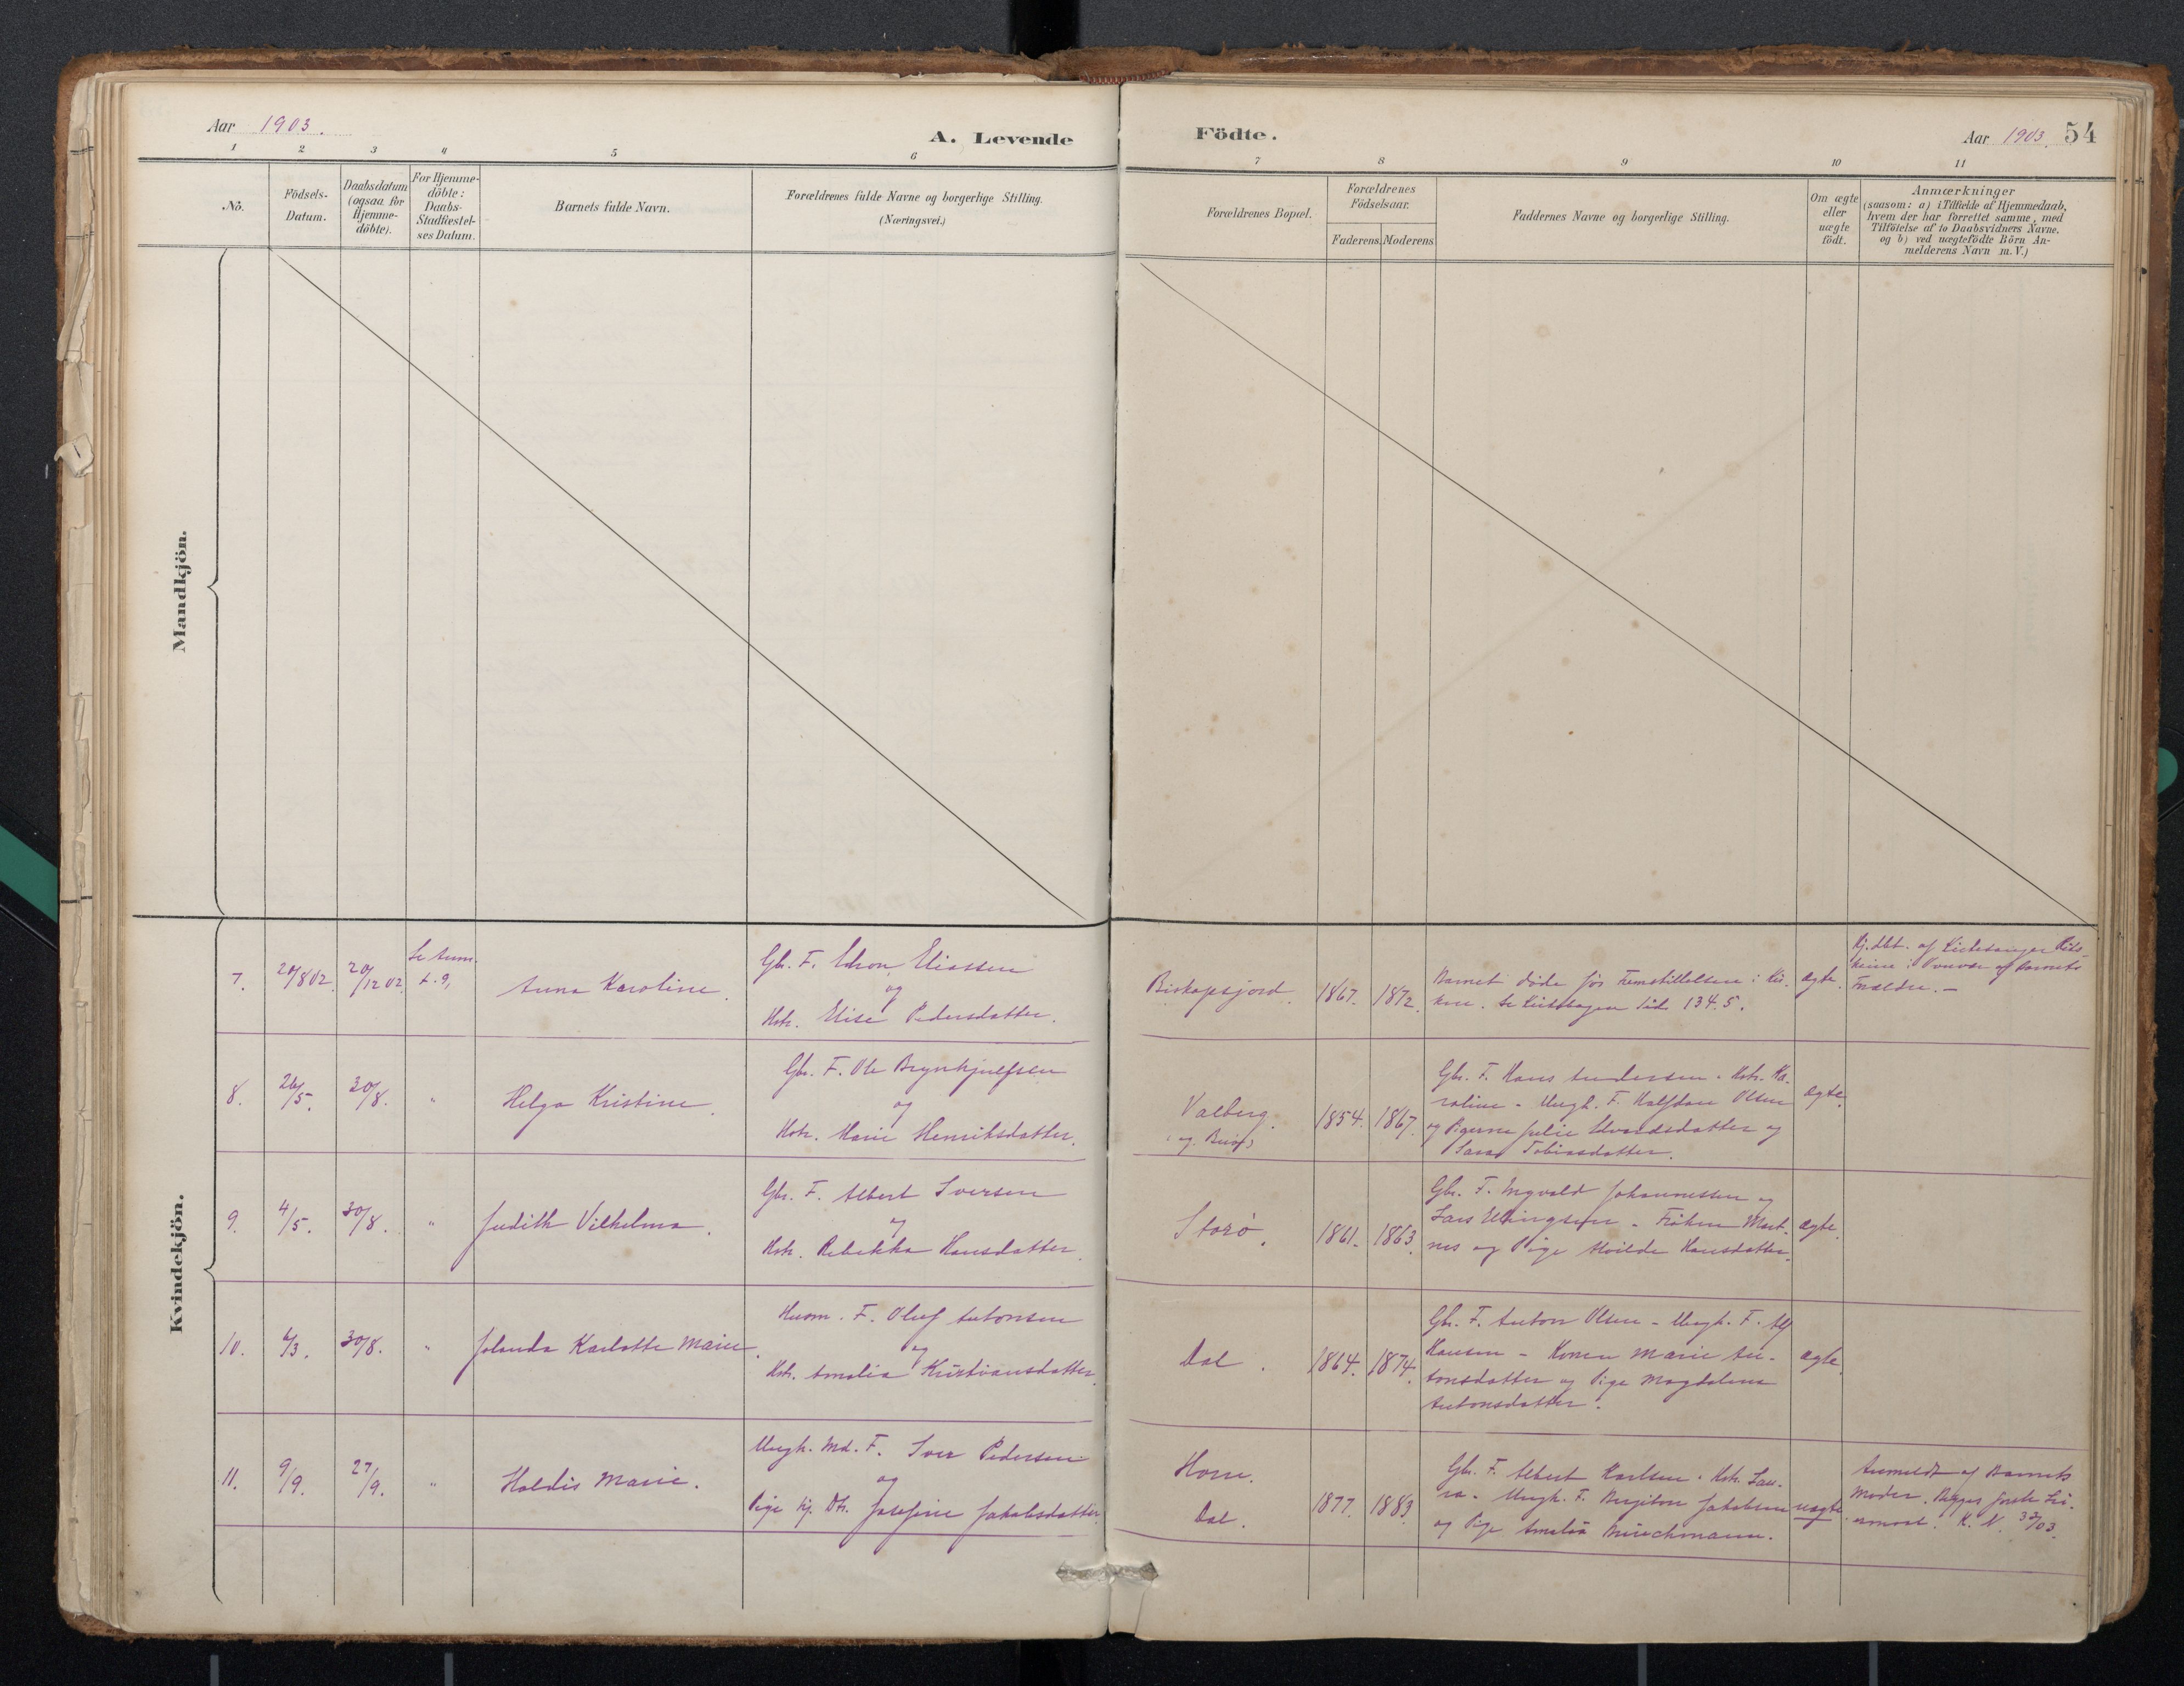 Aar 1903.
A. Levende
Födte.
Aar 1903. 54
1 2 3 4 5 6 7 8 9 10 11
No.
Födsels-
Datum.
Daabsdatum
(ogsaa for
Hjemme-
döbte).
For Hjemme-
döbte:
Daabs-
Stadfæstel-
ses Datum.
Barnets fulde Navn.
Forældrenes fulde Navne og borgerlige Stilling.
(Næringsvei.)
Forældrenes Bopæl.
Forældrenes
Födselsaar.
Faderens. Moderens.
Faddernes Navne og borgerlige Stilling.
Om ægte
eller
uægte
födt.
Anmærkninger
(saasom: a) i Tilfælde af Hjemmedaab,
hvem der har forrettet samme, med
Tilföielse af to Daabsvidners Navne,
og b) ved uægtefödte Börn An-
melderens Navn m. V.)
Mandkjön.
Kvindekjön.
7. 20/8 02. 20/12 02.
Se Anm.
Anna Karoline.
Gbr. F. Edvon Eliassen
og
Hstr. Elise Pedersdatter.
Biskapsfjord. 1867. 1872.
Barnet døde før Fremstillelsen i Kir-
ken. Se Kirkebogen Side 134.5.
ægte.
Hj.dbt. af Kirkesanger
Forældre. —
8. 26/5. 30/8. "
Helga Kristine.
Gbr. F. Ole Brynhjulfsen
og
Hstr. Marie Henriksdatter.
Valberg. 1854. 1867.
Gbr. F. Hans Andersen. Hstr. Ka-
roline - Ungk. F. Halfdan Olsen
og Pigerne Julie Edvardsdatter og
Sara Tobiasdatter.
ægte.
9. 4/5. 30/8. "
Judith Vilhelma.
Gbr. F. Albert Iversen
og
Hstr. Rebekka Hansdatter.
Storø. 1861. 1863.
Gbr. F. Ingvald Johannessen og
Lars Ellingsen - Frøken Mart-
nes og Pige Alvilde Hansdatter.
ægte.
10. 6/3. 30/8. "
Jolanda Karlotte Marie.
Husm. F. Oluf Antonsen
og
Hstr. Amalia Kristiansdatter.
Dal. 1864. 1874.
Gbr. F. Anton Olsen - Ungk. F. Alf
Hansen - Konen Marie An-
tonsdatter og Pige Magdalena
Antonsdatter.
ægte.
11. 9/9. 27/9. "
Haldis Marie.
Ungk. Md. F. Iver Pedersen
og
Pige Hj. Dtr. Josefine Jakobsdatter.
Horn.
Dal.
1877. 1883.
Gbr. F. Albert Karlsen. Hstr. Lau-
ra. Ungk. F. Bergiton Jakobsen
og Pige Amalia Münchmann.
uægte.
Anmeldt af Barnets
Moder. Begges første Lei-
ermaal. K. N. 32/03.